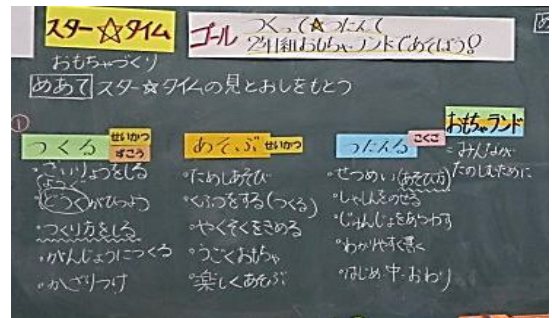 スター☆タイム
ゴール つくって☆つたえて
2年1組おもちゃランドであそぼう!
おもちゃづくり
めあて スター☆タイムの見とおしをもとう
①
つくる せいかつ ずこう
・ざいりょうをしる
・どうぐがひつよう
・つくり方をしる
・がんじょうにつくる
・かざりつけ
あそぶ せいかつ
・ためしあそび
・くふうをする(つくる)
・やくそくをきめる
・うごくおもちゃ
・楽しくあそぶ
つたえる こくご
・せつめい(あそび方)
・しゃしんをのせる
・じゅんじょをあらわす
・わかりやすく書く
・はじめ・中・おわり
おもちゃランド
みんなが
たのしむために